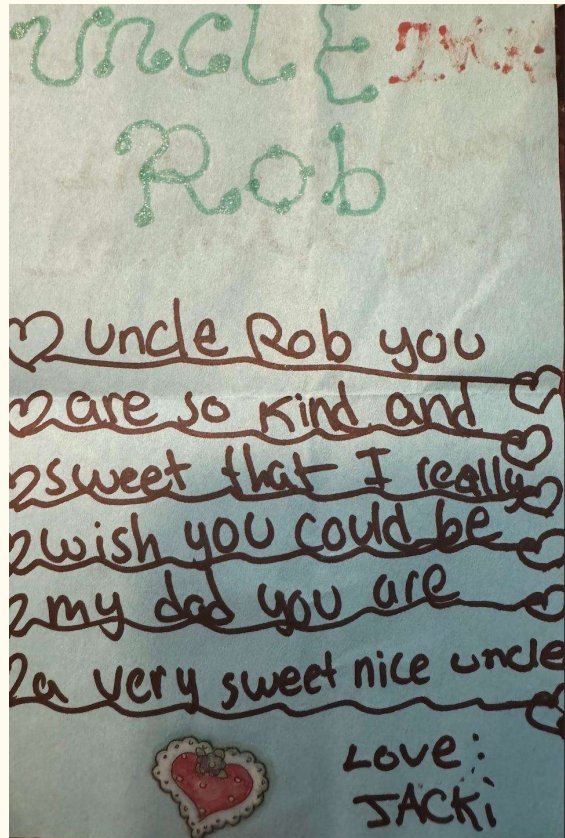 UncLE
Rob
uncle Rob you
are so kind and
sweet that I really
wish you could be
my dad you are
a very sweet nice uncle
Love:
JACKi